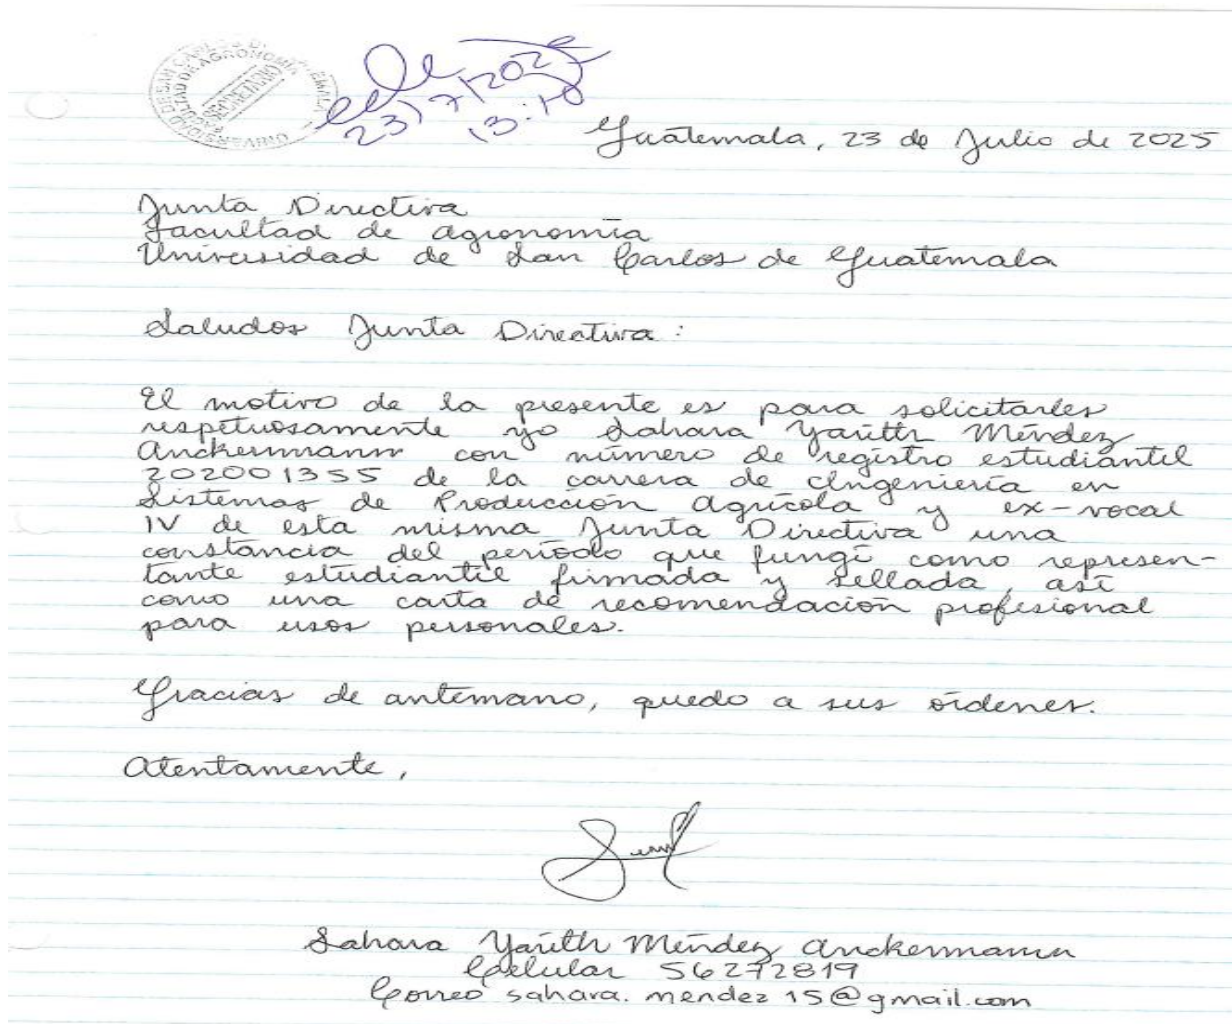 UNIVERSIDAD DE SAN CARLOS DE GUATEMALA
FACULTAD DE AGRONOMIA
SECRETARIO
23/7/2025
13:10
Guatemala, 23 de Julio de 2025
Junta Directiva
Facultad de Agronomía
Universidad de San Carlos de Guatemala
Saludos Junta Directiva:
El motivo de la presente es para solicitarles
respetuosamente yo Sahara Yarith Méndez
Anckermann con número de registro estudiantil
202001355 de la carrera de Ingeniería en
Sistemas de Producción Agrícola y ex-vocal
IV de esta misma Junta Directiva una
constancia del período que fungí como represen-
tante estudiantil firmada y sellada, así
como una carta de recomendación profesional
para usos personales.
Gracias de antemano, quedo a sus órdenes.
Atentamente,
Sahara Yarith Méndez Anckermann
Celular 56272819
Correo sahara.mendez15@gmail.com